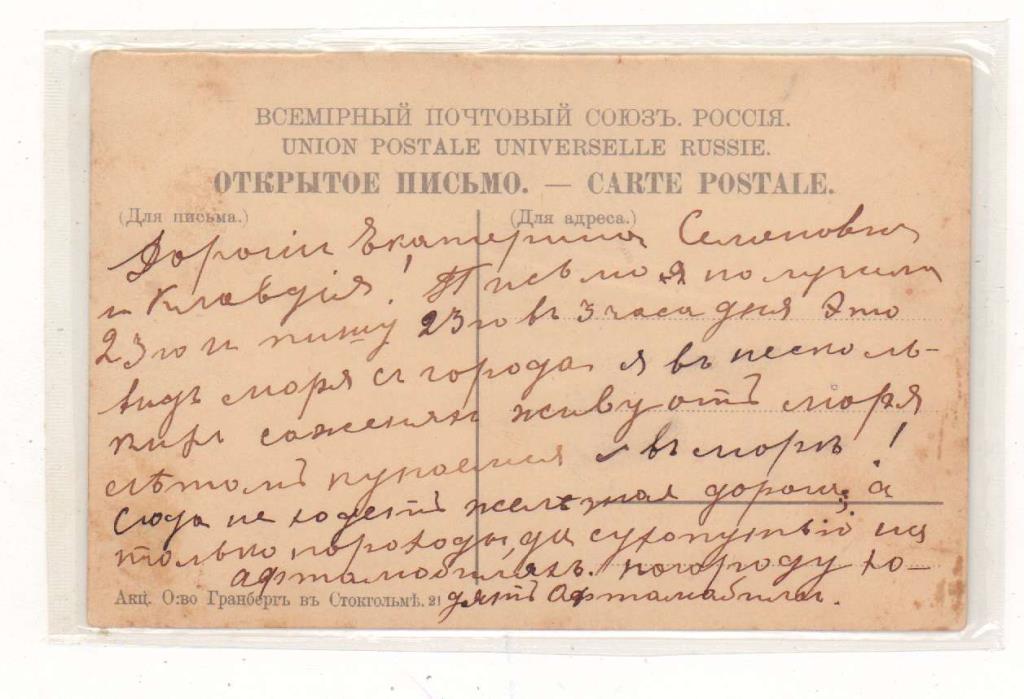 ВСЕМІРНЫЙ ПОЧТОВЫЙ СОЮЗЪ. РОССІЯ.
UNION POSTALE UNIVERSELLE RUSSIE.
ОТКРЫТОЕ ПИСЬМО. — CARTE POSTALE.
(Для письма.) (Для адреса.)
Дорогіи Екатерина Семеновна
и Клавдія! Письмо я получила
23го и пишу 23го въ 3 часа дня Это
видъ моря съ города я въ несколь-
кихъ саженяхъ живу отъ моря
лѣтомъ купаемся въ морѣ!
Сюда не ходетъ желѣзная дорога, а
только пороходы да сухопутьй на
афтамобиляхъ. погороду хо-
дятъ Афтамабили.
Акц. О:во Гранбергъ въ Стокгольмѣ. 21